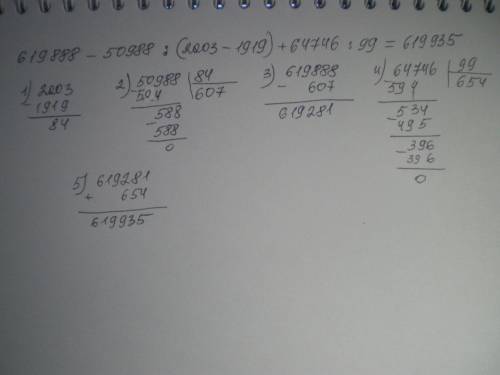 619888 - 50988 : (2003 - 1919) + 64746 : 99 = 619935
1) 2003
- 1919
84
2) 50988 | 84
- 504 | 607
- 588
588
0
3) 619888
- 607
619281
4) 64746 | 99
- 594 | 654
- 534
495
- 396
396
0
5) 619281
+ 654
619935